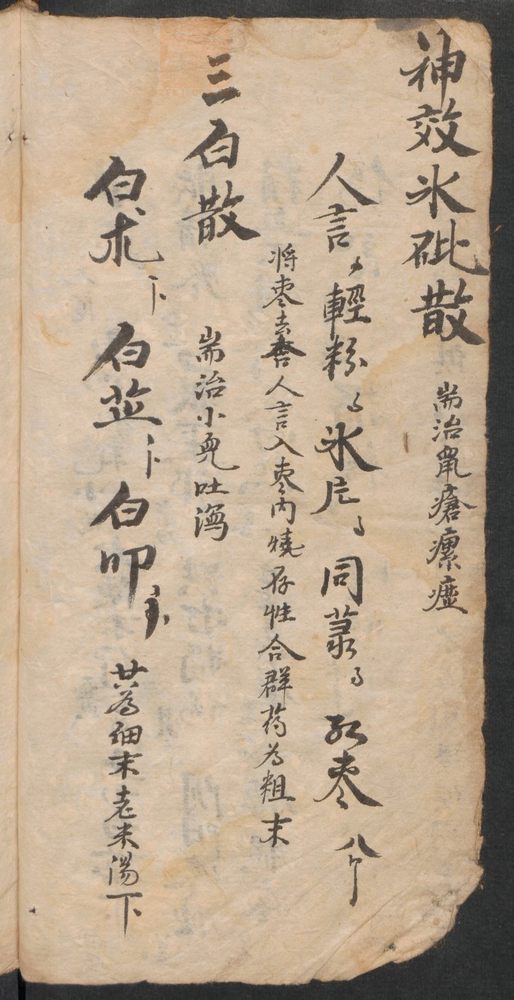 神效氷砒散 耑治鼠瘡瘰癧
人言 輕粉 氷片 同菉 紅棗 八个
將棗去害人言入棗內燒存性合群药為粗末
三白散 耑治小児吐瀉
白朮 白茊 白叩
共為細末老米湯下